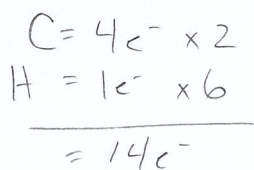 C = 4e⁻ x 2
H = 1e⁻ x 6
= 14e⁻